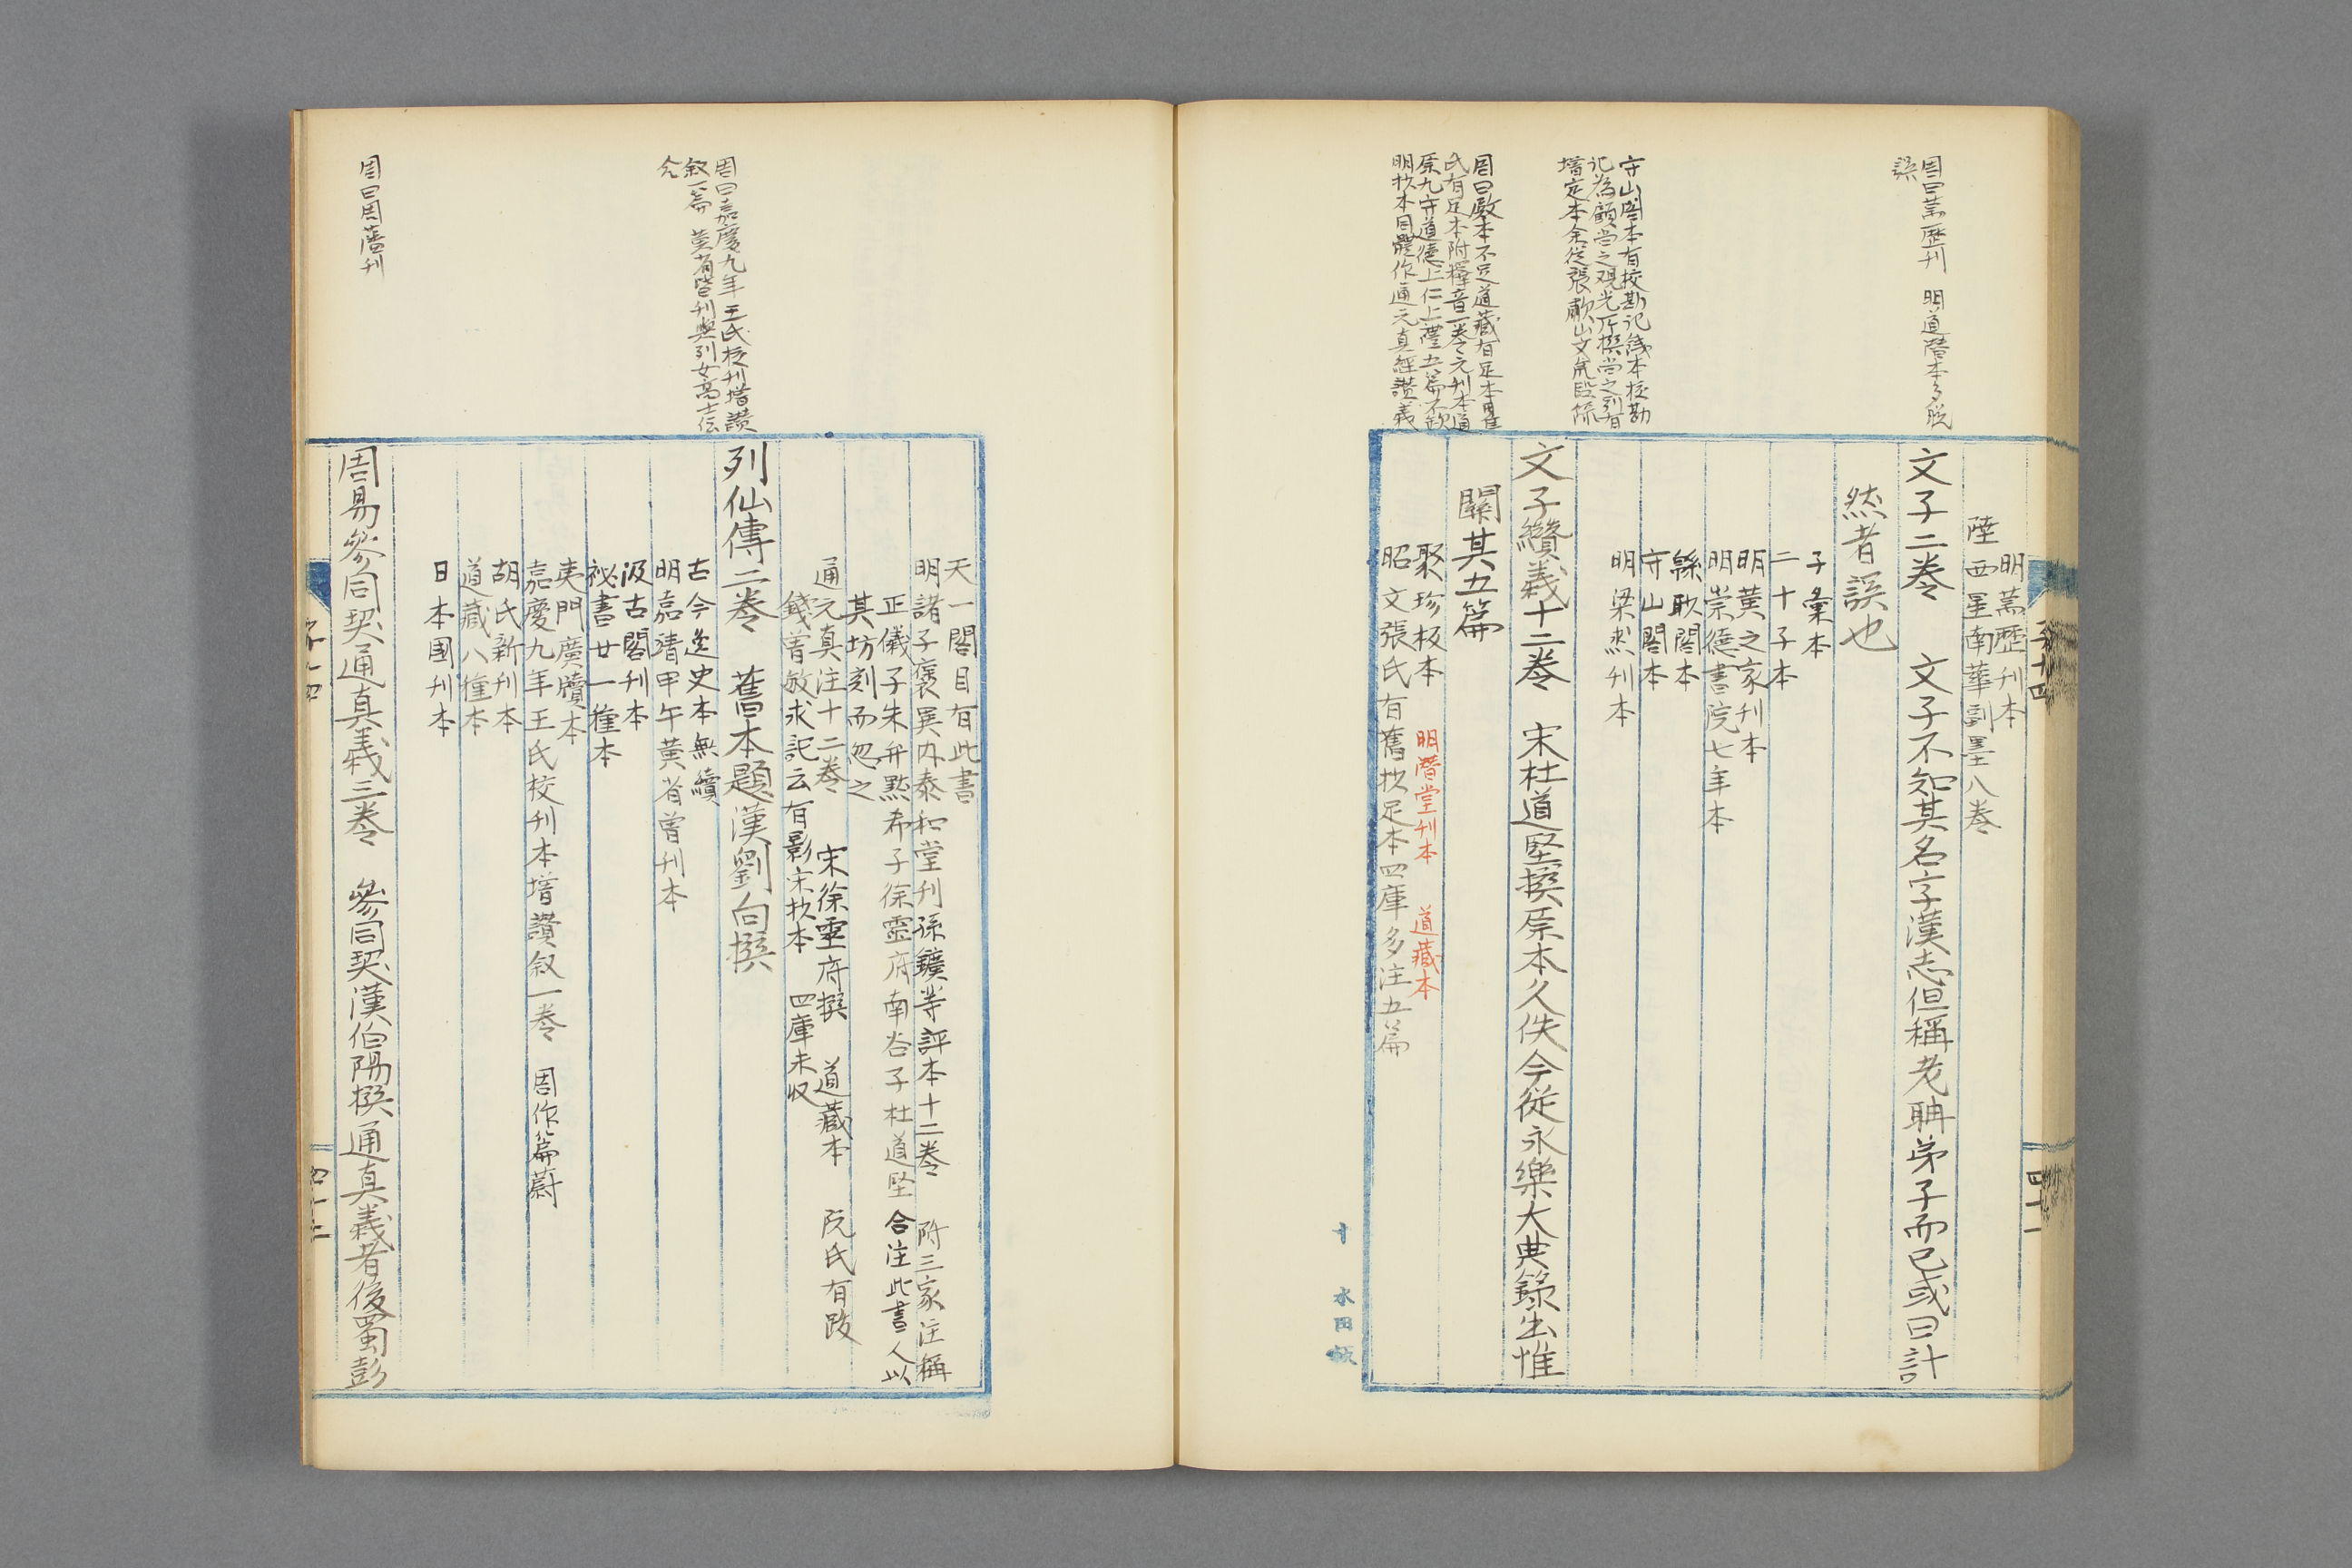 周曰萬歷刊　明道藏本多脫
誤
守山閣本有校勘记錢本校勘
记為顧尚之觀光所撰尚之别有
增定本余從張歗山文虎段係
周曰殿本不足道藏有足本單
氏有足本附釋音一卷元刊本通
原九守道德上仁上禮五篇不缺
明抄本同題作通元真經讚義
明萬歷刊本
陸西星南華副墨八卷
文子二卷　文子不知其名字漢志但稱老聃弟子而已或曰計
然者誤也
子彙本
二十子本
明黃之家刊本
明崇德書院七年本
緜眇閣本
守山閣本
明梁杰刊本
文子纘義十二卷　宋杜道堅撰原本久佚今從永樂大典錄出惟
闕其五篇
聚珍板本　明潛堂刊本　道藏本
昭文張氏有舊抄足本四庫多注五篇
周曰嘉慶九年王氏校刊增讚
叙一篇　黃省曾刊與列女高士伝
合
周曰周藩刊
天一閣目有此書
明諸子褒異內泰和堂刊孫鑛等評本十二卷　附三家注稱
正儀子朱弁默希子徐靈府南谷子杜道堅合注此書人以
其坊刻而忽之
通元真注十二卷　宋徐靈府撰　道藏本　阮氏有跋
錢曾敏求記云有影宋抄本　四庫未收
列仙傳二卷　舊本題漢劉向撰
古今逸史本無續
明嘉靖甲午黃省曾刊本
汲古閣刊本
祕書廿一種本
夷門廣牘本
嘉慶九年王氏校刊本增讚叙一卷　周作篇蔚
胡氏新刊本
道藏八種本
日本國刊本
周易參同契通真義三卷　參同契漢伯陽撰通真義者後蜀彭